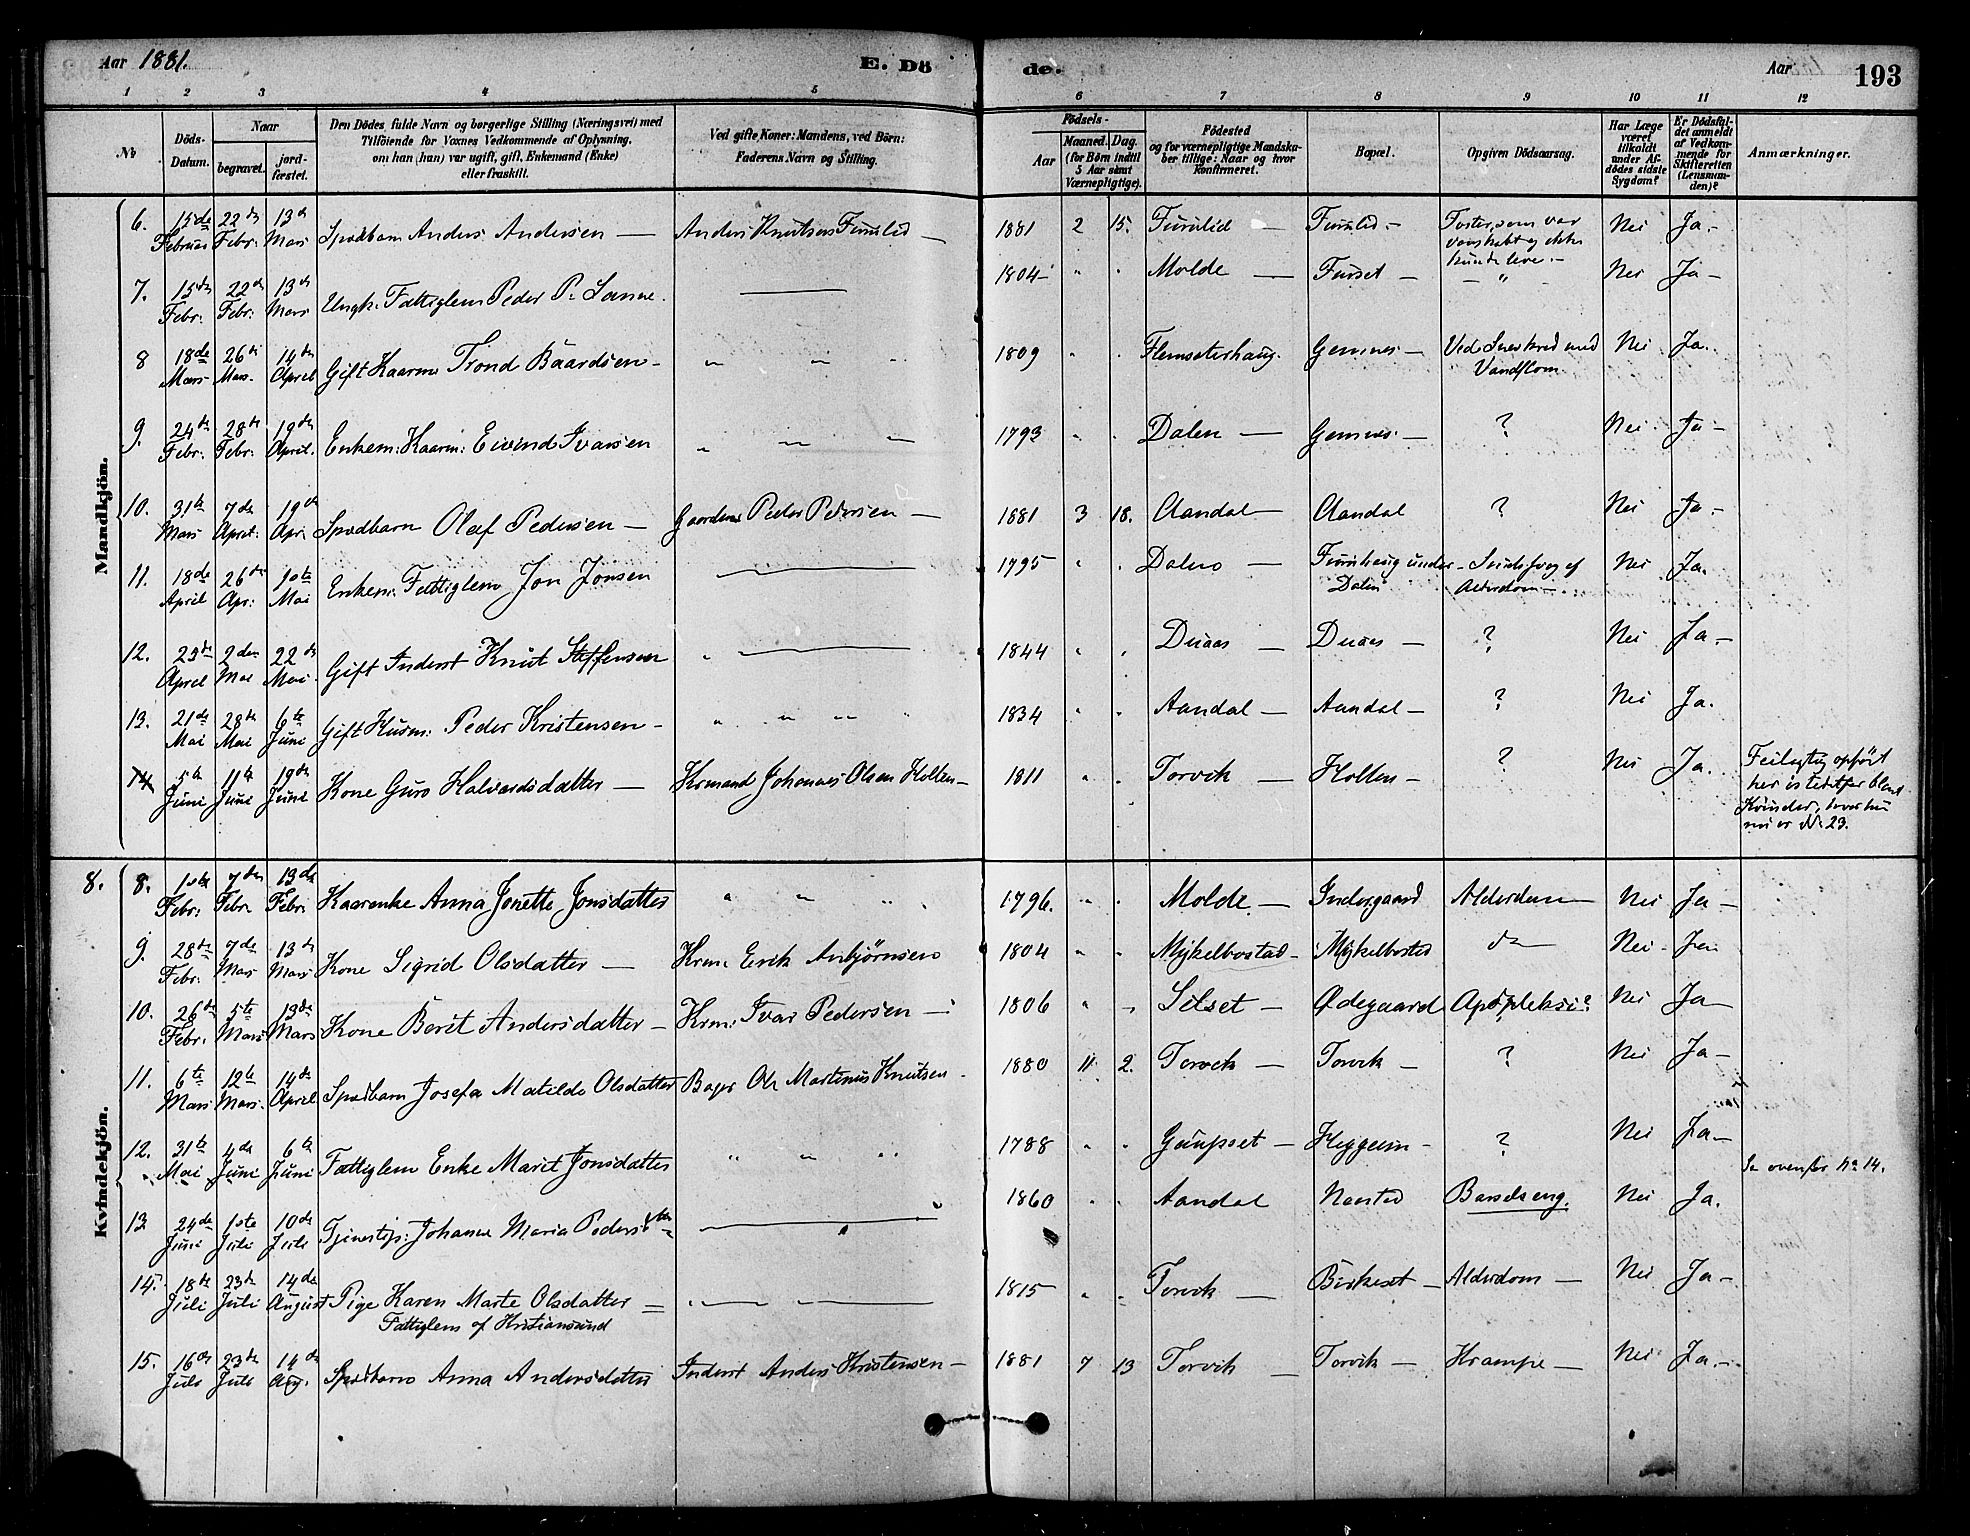 Aar 1881. E. Dö de. Aar 193
1 2 3 4 5 6 7 8 9 10 11 12
No
Döds-Datum.
Naar
begravet.
jord-fæstet.
Den Dödes fulde Navn og borgerlige Stilling (Næringsvei) med
Tilföiende for Voxnes Vedkommende af Oplysning,
om han (hun) var ugift, gift, Enkemand (Enke)
eller fraskilt.
Ved gifte Koner: Mandens, ved Börn:
Faderens Navn og Stilling.
Födsels-
Aar
Maaned. Dag.
(for Börn indtil
5 Aar samt
Værnepligtige).
Födested
og for værnepligtige Mandska-
ber tillige: Naar og hvor
konfirmeret.
Bopæl.
Opgiven Dödsaarsag.
Har Læge
været
tilkaldt
under Af-
dödes sidste
Sygdom?
Er Dödsfal-
det anmeldt
af Vedkom-
mende for
Skifteretten
(Lensman-
den)?
Anmærkninger.
Mandkjön.
6. 15de Februar 22de Febr. 13de Mars Spædbarn Anders Andersen — Anders Knutsen Furulid — 1881 2 15. Furulid — Furulid — Foster, som var vanskabt og ikke kunde leve. — Nei Ja. —
7. 15de Febr. 22de Febr. 13de Mars Ungk. Fattiglem Peder P. — 1804 " " Molde — Furset — — " — Nei Ja —
8 18de Mars 26de Mars. 14de April Gift Kaarm. Trond Baardsen — " " " 1809 " " Flemseterhaug. Gimnes — Ved Sneskred med Vandflom Nei Ja.
9. 24de Febr. 28de Febr. 19de April. Enkem: Kaarm: Eivind Ivarsen " " " 1793 " " Dalen — Gimnes — ? Nei Ja —
10. 31te Mars 7de April. 19de Apr. Spædbarn Olaf Pedersen — Gaardm. Peder Pedersen — 1881 3 18. Aandal — Aandal ? Nei Ja —
11. 18de April 26de Apr: 10de Mai Enkem. Fattiglem Jon Jonsen — 1795 " " Dalen — Furuhaug under Dalen Alderdom — Nei Ja.
12. 23de April 2den Mai 22de Mai Gift Inderst Knut Steffensen " — 1844 " " Duaas — Duaas — ? Nei Ja —
13. 21de Mai 28de Mai 6te Juni Gift Husm: Peder Kristensen — " " " " 1834 " " Aandal — Aandal — ? Nei Ja.
14 5te Juni 11te Juni 19de Juni Kone Guro Halvardsdatter — Krmand Johannes Olsen Holten — 1811 " " Torvik — Holten — ? Nei Ja. Feilagtig opført her istedetfor blant Kvinder, hvor hun nu er No 23.
Kvindekjön.
8. 8. 1ste Febr: 7de Febr. 13de Febr. Kaarenke Anna Jonette Jonsdatter " " " " 1796. " " Molde — Indergaard Alderdom — Nei Ja —
9. 28de Febr. 7de Mars 13de Mars Kone Sigrid Olsdatter — Krm. Erik Anbjørnsen 1804 " " Mykelbostad — Mykelbostad do — Nei — Ja.
10. 26de Febr. 5te Mars 13de Mars Kone Berit Andersdatter — Krm: Ivar Pedersen — 1806 " " Silset — Ødegaard Apopleksi? Nei Ja —
11. 6te Mars 12te Mars. 14de April Spædbarn Josefa Matilde Olsdatter Bager Ole Martinus Knutsen. 1880 11. 2. Torvik — Torvik — ? Nei Ja —
12. 31te Mai 4de Juni 6te Juni Fattiglem Enke Marit Jonsdatter " " " " 1788 " " Gaupset — Heggeim — ? Nei Ja — Se ovenfor No 14.
13 24de Juni 1ste Juli 10de Juli Tjenestep: Johanne Maria Pedersdtr — 1860 " " Aandal Naastad Barselseng. Nei Ja.
14. 18de Juli 23de Juli 14de August Pige Karen Marte Olsdatter — Fattiglem af Kristiansund " " — 1815 " " Torvik — Birkeset — Alderdom — Nei Ja —
15. 16de Juli 23de Juli 14de Aug. Spædbarn Anna Andersdatter Inderst Anders Kristensen — 1881 7 13 Torvik — Torvik — Krampe — Nei Ja. —